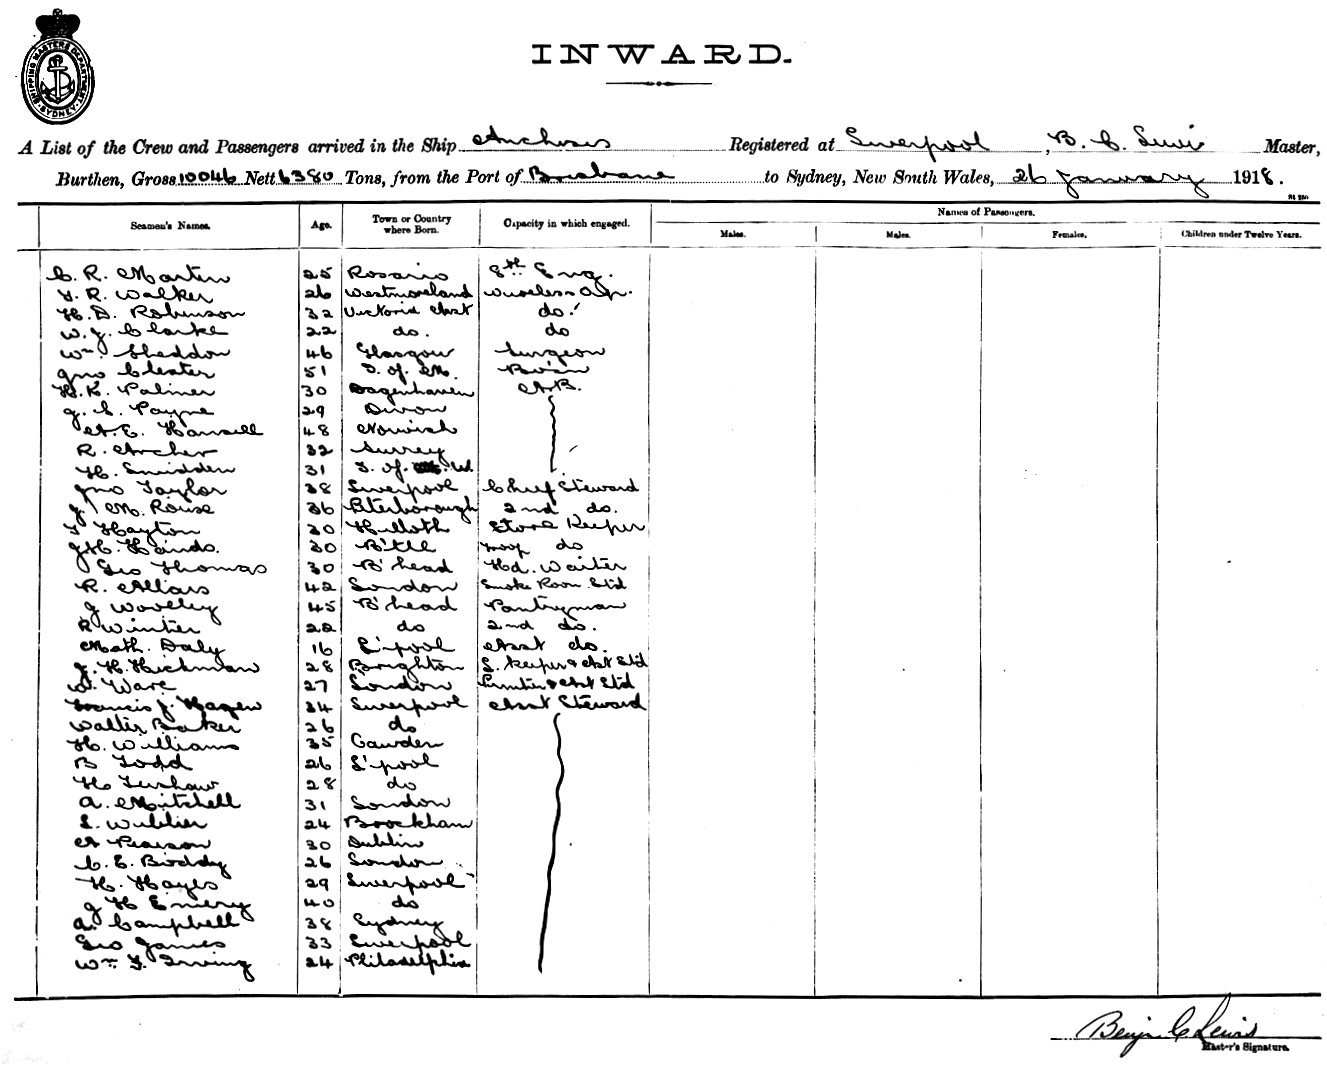 SHIPPING MASTERS DEPARTMENT
SYDNEY
INWARD.
A List of the Crew and Passengers arrived in the Ship Anchises Registered at Liverpool, B. C. Lewis Master,
Burthen, Gross 10046 Nett 6380 Tons, from the Port of Brisbane to Sydney, New South Wales, 26 January 1918.
Seamen's Names. Age. Town or Country where Born. Capacity in which engaged. Names of Passengers.
Males. Males. Females. Children under Twelve Years.
C. R. Martin 25 Rosario 8th Eng.
R. Walker 26 Westmoreland Wireless Op.
H. D. Robinson 32 Victoria Aust do.
W. J. Clarke 22 do. do
Wm. Sheddon 46 Glasgow Surgeon
Jno Cleater 51 I. of M. Bo'sn
H. K. Palmer 30 A.B.
J. C. Payne 29 Devon
A. E. Hansell 48 Norwich
R. Archer 32 Surrey
H. Smidden 31 I. of W.
Jno Taylor 38 Liverpool Chief Steward
J. M. Rouse 36 Peterborough 2nd do.
Hayton 30 Store Keeper
J. H. Hainds. 30 B'tle Troop do
Geo Thomas 30 B'head Hd. Waiter
R. Allais 42 London Smoke Room Std
J Woolley 45 B'head Pantryman
R Winter 22 do 2nd do.
Math. Daly 16 L'pool Asst do.
J. H. Hickman 28 Brighton S. Keeper & Ast Std
Ware 27 London & Ast Std
Francis J. Hagen 34 Liverpool Asst Steward
Walter Baker 26 do
H. Williams 35 Cawden
B Todd 26 L'pool
H. 28 do
A. Mitchell 31 London
24 Brockham
A Pearson 30 Dublin
C. E. Boddy 26 London
H. Hayes 29 Liverpool
J H Emery 40 do
A. Campbell 38 Sydney
Geo James 33 Liverpool
Wm. F. Irving 24 Philadelphia
Benj. C Lewis
Master's Signature.